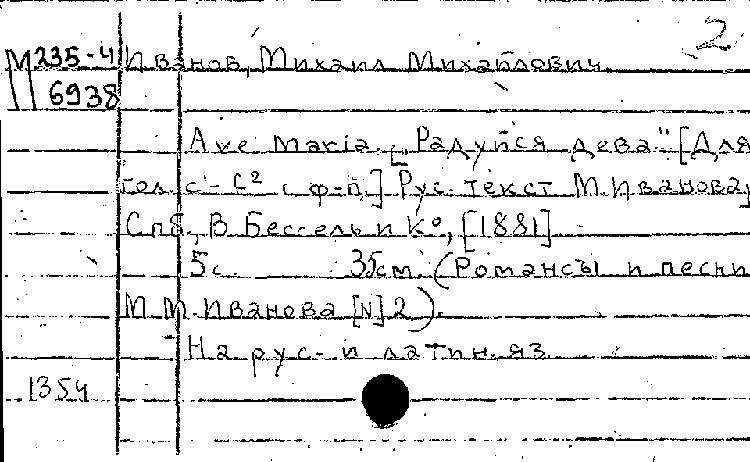 2
М 235-4 Иванов, Михаил Михайлович.
6938
Ave Maria. „Радуйся дева" [Для
гол. c¹- с² с ф-п.] Рус. текст М. Иванова,
Спб., В. Бессель и К°, [1881]
5 с. 35 см. (Романсы и песни
М. М. Иванова [N] 2).
На рус. и латин. яз.
1354